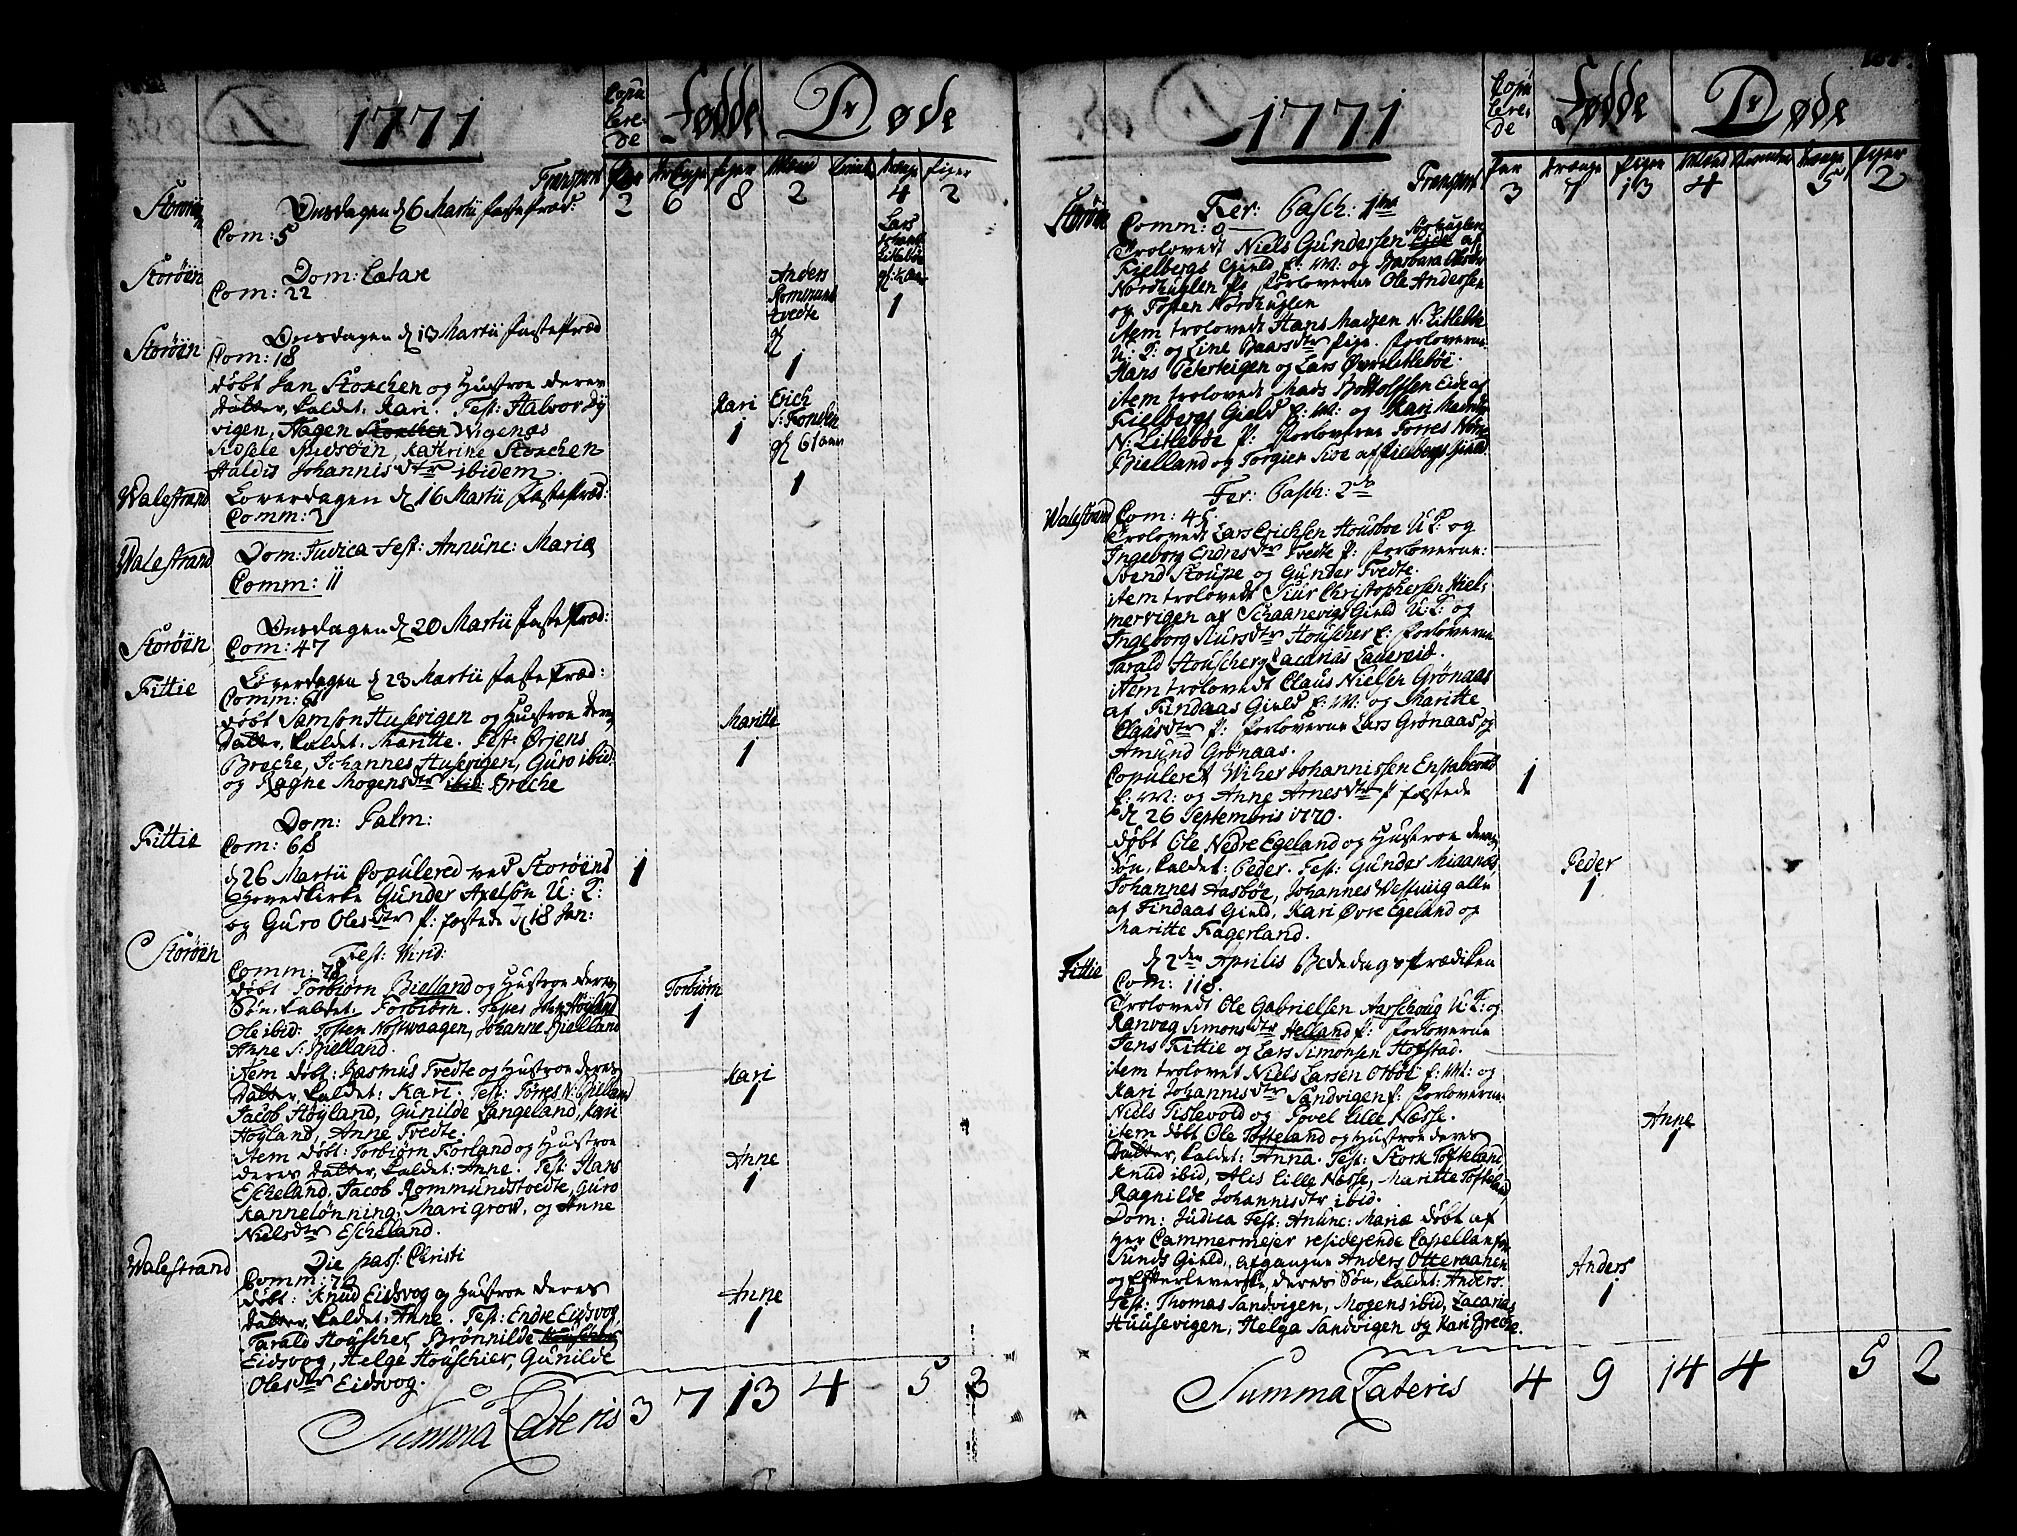 1771
Copulerede Fødde Døde
Transport Par Drenge Piger Mænd Qvind Drenge Piger
2 6 8 2 4 2
Storøen Onsdagen d 6 Martii fastepræd:
Com: 5
Lars
Litlebøe
1
Storøen Dom: Lætare
Com: 22
Anders
Rommunds
tvedte
1
Storøen Onsdagen d 13 Martii fastepræd
Com: 18
døbt Jan Storchen og Hustroe deres
Datter, kaldet: Kari. Test: Halvor Dy
vigen, Hagen Storchen Vigenæs
Sidsele katrine Storchen
Huldis Johannisdtr ibidem.
Kari
1
Erich
1
Walestrand Løverdagen d 16 Martii fastepræd:
Comm: 7
Walestrand Dom: Judica Fest: Annunc: Mariæ
Comm: 11
Storøen Onsdagen d 20 Martii fastepræd:
Com: 47
Fittie Løverdagen d 23 Martii fastepræd:
Comm: 61
døbt Samson Husevigen og Hustroe deres
Datter, kaldet: Maritte. Test: Ørjens
Breche, Johannes Husevigen, Guro ibid:
og Ragne Mogensdtr ibid: Breche
Maritte
1
Fittie Dom: Palm:
Com: 68
d 26 Martii Copulered ved Storøens
Hovedkirke Gunder Axelsøn U: K:
og Guro Olesdtr P: fæstede d 18 Jan:
1
Storøen Fest: Virid:
Comm: 78
døbt Torbiørn Bielland og Hustroe deres
Søn, kaldet: Torbiørn. Testes John Høyland
Ole ibid: Tosten Nostwaagen, Johanne Bielland
Anne S: Bielland.
Torbiørn
1
item døbt: Rasmus Tvedte og Hustroe deres
Datter, kaldet: Kari. Test: Tørres N: Bielland
Jacob Høyland, Gunilde Langeland, Kari
Høyland, Anne Tvedte.
Kari
1
Item døbt: Torbiørn Førland og Hustroe
deres Datter, kaldet: Anne. Test: Hans
Escheland, Jacob Rommundstvedte, Guro
Kannelønning, Mari Grov, og Anne
Nielsdtr Escheland.
Anne
1
Walestrand Die pass: Christi
Comm: 72
døbt: Knud Eidsvog og Hustroe deres
Datter, kaldet: Anne. Test: Endre Eidsvog,
Tarald Houscher, Brønnilde
Eidsvog, Helge Houschier, Gunilde
Olesdtr Eidsvog.
Anne
1
Summa Lateris 3 7 13 4 5 3
1771
Copulerede Fødde Døde
Transport Par Drenge Piger Mænd Qvinder Drenge Piger
3 7 13 4 5 2
Storøen Fer: Pasch: 1ma
Comm: 9
Trolovedt Niels Gundersen Eide af
Fielbergs Gield E: M: og Barbara
Nordhuglen P: Forloverne Ole Andersen
og Tosten Nordhuglen
item trolovedt Hans Madsen N: Litlebøe
U: K: og Line Baarsdtr Pige. Forloverne
Hans Peterteigen og Lars Øvre Litlebøe.
item trolovedt Mads Bottolfsen Eide af
Fielbergs Gield E: M: og Kari
N: Litlebøe P: Forloverne Torres Nedre
Bielland og Torgier Eide af Fielbergs Gield.
Walestrand Fer: Pasch: 2da
Com: 45.
Trolovedt Lars Erichsen Housboe U: K: og
Ingeborg Endresdtr Tvedte P: Forloverne:
Svend Stoupe og Gunder Tvedte.
item trolovedt Siur Christophersen Hiel-
mervigen af Schaanevigs Gield U: K: og
Ingeborg Siursdtr Houscher E: Forloverne
Tarald Houscher, Zacarias Lauereid.
item trolovedt Claus Nielsen Grønaas
af Findaas Gield E: M: og Maritte
Claasdtr P: Forloverne Lars Grønaas og
Amund Grønaas.
Copuleret Wiker Johannissen Enstabøvold
E: M: og Anne Arnesdtr P fæstede
d 26 Septembris 1770.
1
døbt Ole Nedre Egeland og Hustroe deres
Søn, kaldet: Peder. Test: Gunder Miaanæs,
Johannes Aasbøe, Johannes Westvig alle
af Findaas Gield, Kari Øvre Egeland og
Maritte Fagerland.
Peder
1
Fittie d 2den Aprilis Bededagsprædiken
Com: 118.
Trolovedt Ole Gabrielsen Aarschoug U: K: og
Ranvog Simonsdtr Helland P: Forloverne
Jens Fittie og Lars Simonsen Hofstad.
item trolovet Niels Larsen Otbøe E: M: og
Kari Johannisdtr Sandvigen P: Forloverne
Niels Tislevold og Povel Lille Næsse.
item døbt Ole Tofteland og Hustroe deres
Datter, kaldet: Anna. Test: Stork Tofteland
Knud ibid, Alis Lille Næsse, Maritte Tofteland,
Ragnilde Johannisdtr ibid.
Anne
1
Dom: Judica Fest: Anunc: Mariæ døbt af
Her Cammermejer residerende Capellan for
Sunds Gield, afgangne Anders Otteraanen
og Efterleverske, deres Søn, kaldet: Anders.
Test: Thomas Sandvigen, Mogens ibid, Zacarias
Huusevigen, Helga Sandvigen og Kari Breche.
Anders
1
Summa Lateris 4 9 14 4 5 2